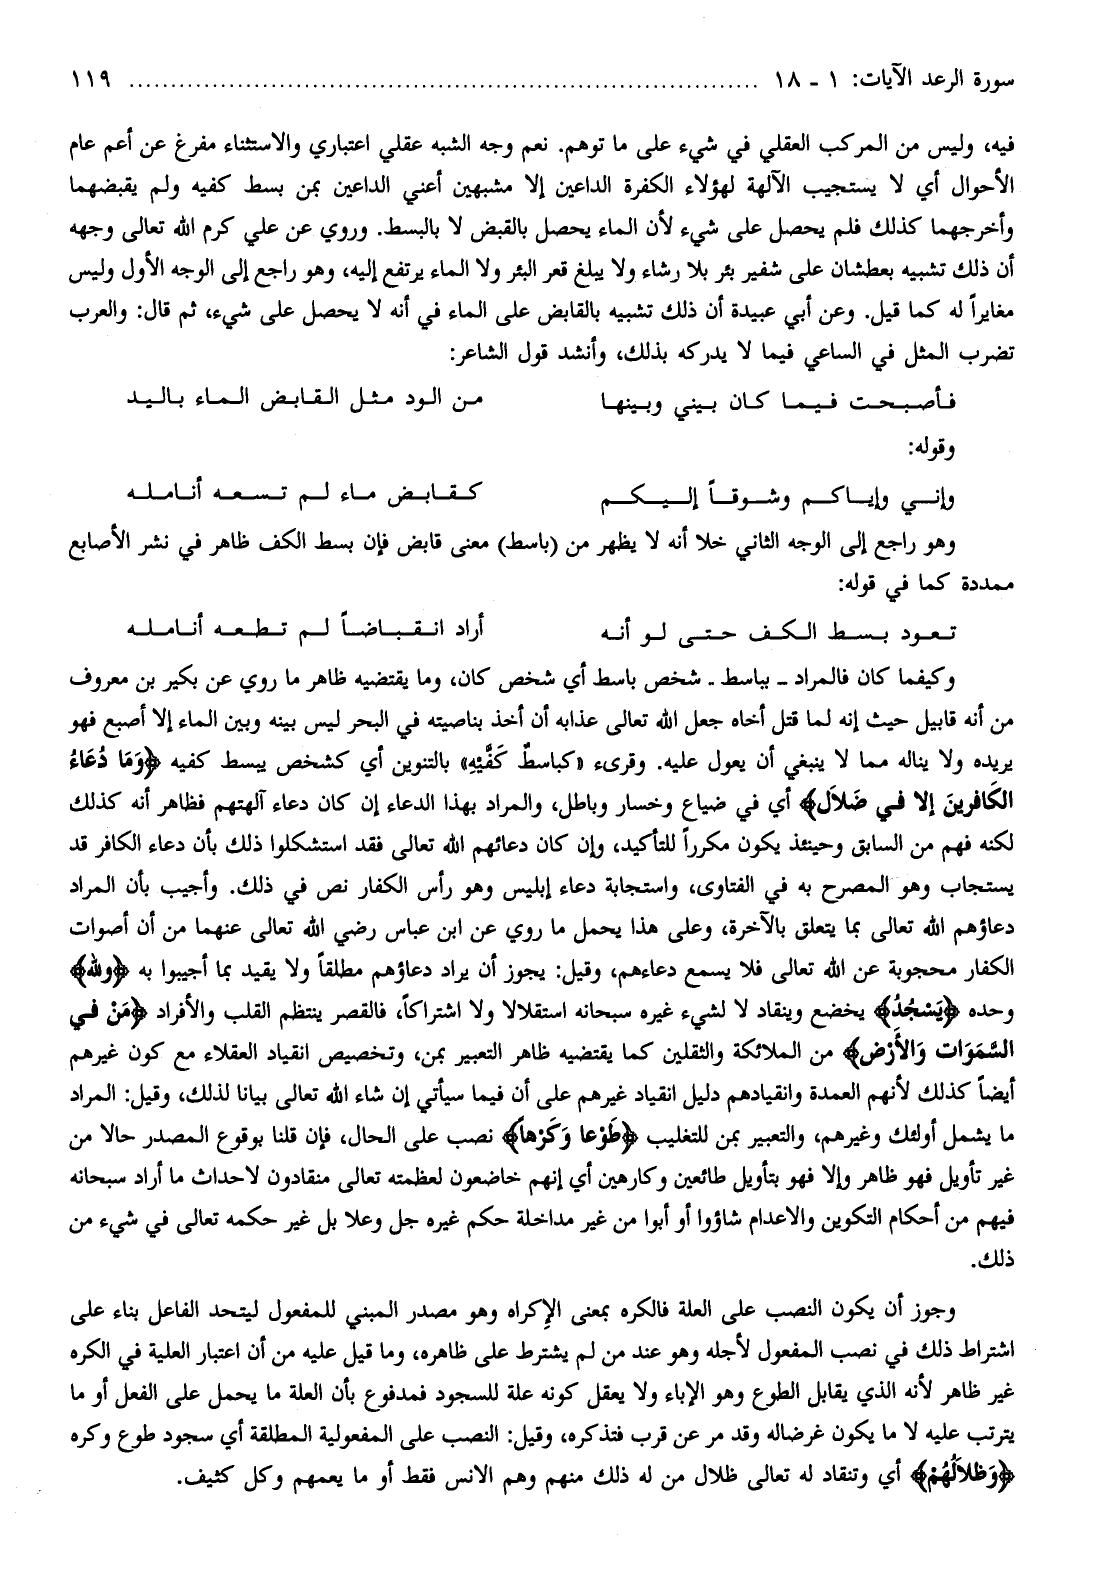 سورة الرعد الآيات: ١ ـ ١٨ ........................................................................................ ١١٩
فيه، وليس من المركب العقلي في شيء على ما توهم. نعم وجه الشبه عقلي اعتباري والاستثناء مفرغ عن أعم عام
الأحوال أي لا يستجيب الآلهة لهؤلاء الكفرة الداعين إلا مشبهين أعني الداعين بمن بسط كفيه ولم يقبضهما
وأخرجهما كذلك فلم يحصل على شيء لأن الماء يحصل بالقبض لا بالبسط. وروي عن علي كرم الله تعالى وجهه
أن ذلك تشبيه بعطشان على شفير بئر بلا رشاء ولا يبلغ قعر البئر ولا الماء يرتفع إليه، وهو راجع إلى الوجه الأول وليس
مغايراً له كما قيل. وعن أبي عبيدة أن ذلك تشبيه بالقابض على الماء في أنه لا يحصل على شيء، ثم قال: والعرب
تضرب المثل في الساعي فيما لا يدركه بذلك، وأنشد قول الشاعر:
فأصبحت فيما كان بيني وبينها من الود مثل القابض الماء باليد
وقوله:
وإني وإياكم وشوقاً إليكم كقابض ماء لم تسعه أنامله
وهو راجع إلى الوجه الثاني خلا أنه لا يظهر من (باسط) معنى قابض فإن بسط الكف ظاهر في نشر الأصابع
ممددة كما في قوله:
تعود بسط الكف حتى لو أنه أراد انقباضاً لم تطعه أنامله
وكيفما كان فالمراد ـ بباسط ـ شخص باسط أي شخص كان، وما يقتضيه ظاهر ما روي عن بكير بن معروف
من أنه قابيل حيث إنه لما قتل أخاه جعل الله تعالى عذابه أن أخذ بناصيته في البحر ليس بينه وبين الماء إلا أصبع فهو
يريده ولا يناله مما لا ينبغي أن يعول عليه. وقرىء «كباسطٌ كَفَّيْهِ» بالتنوين أي كشخص يبسط كفيه ﴿وَمَا دُعَاءُ
الكَافرينَ إلا في ضَلاَل﴾ أي في ضياع وخسار وباطل، والمراد بهذا الدعاء إن كان دعاء آلهتهم فظاهر أنه كذلك
لكنه فهم من السابق وحينئذ يكون مكرراً للتأكيد، وإن كان دعائهم الله تعالى فقد استشكلوا ذلك بأن دعاء الكافر قد
يستجاب وهو المصرح به في الفتاوى، واستجابة دعاء إبليس وهو رأس الكفار نص في ذلك. وأجيب بأن المراد
دعاؤهم الله تعالى بما يتعلق بالآخرة، وعلى هذا يحمل ما روي عن ابن عباس رضي الله تعالى عنهما من أن أصوات
الكفار محجوبة عن الله تعالى فلا يسمع دعاءهم، وقيل: يجوز أن يراد دعاؤهم مطلقاً ولا يقيد بما أجيبوا به ﴿ولله﴾
وحده ﴿يَسْجُدُ﴾ يخضع وينقاد لا لشيء غيره سبحانه استقلالا ولا اشتراكاً، فالقصر ينتظم القلب والأفراد ﴿مَنْ في
السَّمَوَات وَالأَرْض﴾ من الملائكة والثقلين كما يقتضيه ظاهر التعبير بمن، وتخصيص انقياد العقلاء مع كون غيرهم
أيضاً كذلك لأنهم العمدة وانقيادهم دليل انقياد غيرهم على أن فيما سيأتي إن شاء الله تعالى بيانا لذلك، وقيل: المراد
ما يشمل أولئك وغيرهم، والتعبير بمن للتغليب ﴿طَوْعا وَكَرْهاً﴾ نصب على الحال، فإن قلنا بوقوع المصدر حالا من
غير تأويل فهو ظاهر وإلا فهو بتأويل طائعين وكارهين أي إنهم خاضعون لعظمته تعالى منقادون لاحداث ما أراد سبحانه
فيهم من أحكام التكوين والاعدام شاؤوا أو أبوا من غير مداخلة حكم غيره جل وعلا بل غير حكمه تعالى في شيء من
ذلك.
وجوز أن يكون النصب على العلة فالكره بمعنى الإِكراه وهو مصدر المبني للمفعول ليتحد الفاعل بناء على
اشتراط ذلك في نصب المفعول لأجله وهو عند من لم يشترط على ظاهره، وما قيل عليه من أن اعتبار العلية في الكره
غير ظاهر لأنه الذي يقابل الطوع وهو الإباء ولا يعقل كونه علة للسجود فمدفوع بأن العلة ما يحمل على الفعل أو ما
يترتب عليه لا ما يكون غرضاله وقد مر عن قرب فتذكره، وقيل: النصب على المفعولية المطلقة أي سجود طوع وكره
﴿وَظلاَلُهُمْ﴾ أي وتنقاد له تعالى ظلال من له ذلك منهم وهم الانس فقط أو ما يعمهم وكل كثيف.